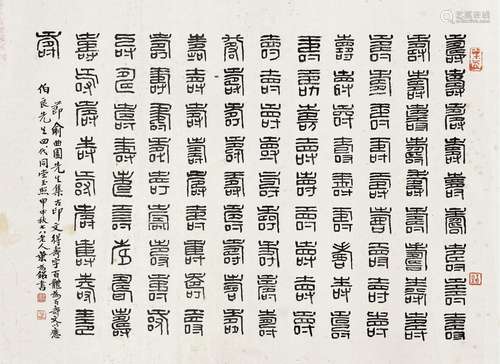 壽壽壽壽壽壽壽壽壽
壽壽壽壽壽壽壽壽壽
壽壽壽壽壽壽壽壽壽
壽壽壽壽壽壽壽壽壽
壽壽壽壽壽壽壽壽壽
壽壽壽壽壽壽壽壽壽
壽壽壽壽壽壽壽壽壽
壽壽壽壽壽壽壽壽壽
壽壽壽壽壽壽壽壽壽
壽壽壽壽壽壽壽壽壽
壽壽壽壽壽壽壽壽壽
壽
節俞曲園先生集古印文得壽字百體為百壽文以應
伯良先生四代同堂 甲申秋七八老人葉為銘書